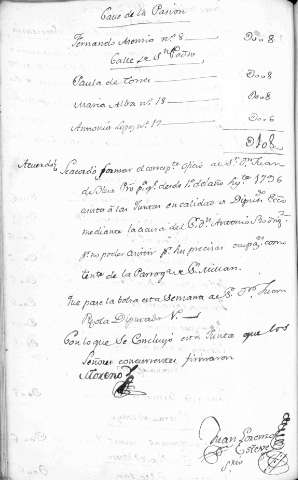 Calle de la Pasion
Fernando Asensio nº. 8 — Do. 8
Calle de Sn. Pedro
Paula de Torres — Do. 8
Maria Alba nº. 18 — Do. 8
Antonia Lopez nº. 17 — Do. 6
D108
Acuerdos Se acordó formar el corresp.te oficio al Sr. Dn. Juan
de pª. qe. desde 1º. del año de 1796
asista á las Juntas en calidad de Diputº. Ecco.
mediante la ausa. del Sr. Dn. Antonio Rodrig.
pr. no poder asistir pr. las precisas ocupac.
de la Parroqª. de Sn. Millan.
que pase la bolsa esta semana al Sr. Dn. Juan
Diputado Vº.
Con lo que se Concluyó esta Junta que los
Señores concurrentes firmaron
Moreno
Juan Lorenzo
Esteve
Srio